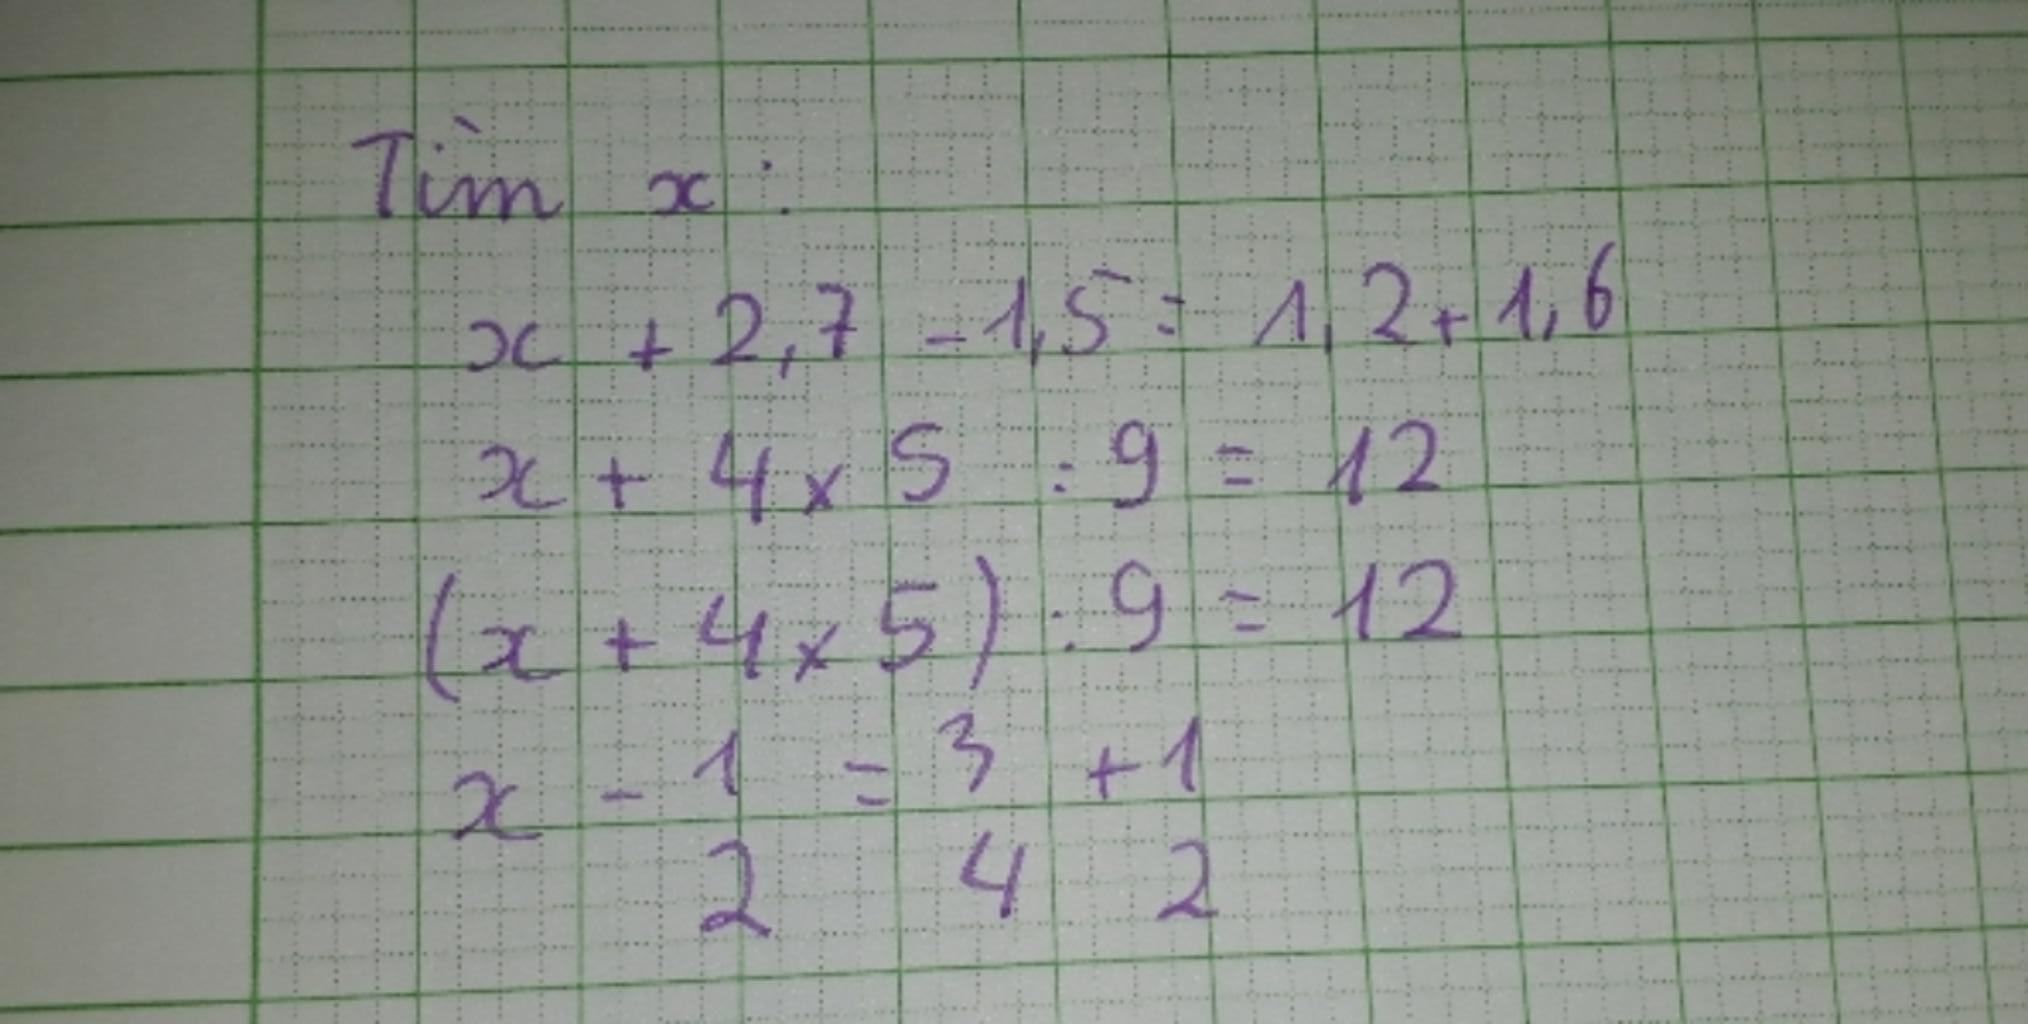 Tìm x:
x + 2,7 - 1,5 = 1,2 + 1,6
x + 4 x 5 : 9 = 12
(x + 4 x 5) : 9 = 12
x - 1 = 3 + 1
2 4 2